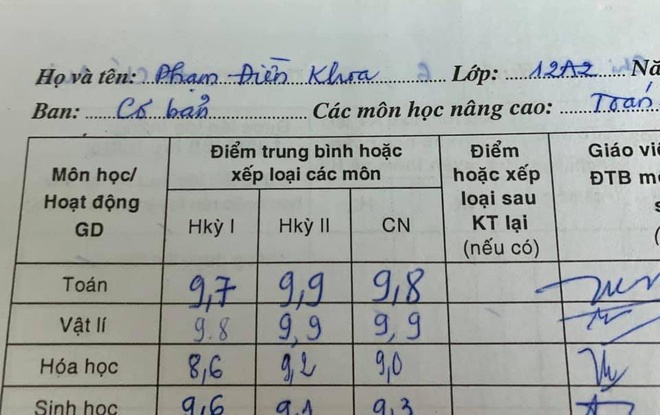 Họ và tên: Phạm Điền Khoa Lớp: 12A2 Nă
Ban: Cơ bản Các môn học nâng cao: Toán
Môn học/ Hoạt động GD Điểm trung bình hoặc xếp loại các môn Điểm hoặc xếp loại sau KT lại (nếu có) Giáo vi ĐTB m s (
Hkỳ I Hkỳ II CN
Toán 9,7 9,9 9,8
Vật lí 9.8 9,9 9,9
Hóa học 8,6 9,2 9,0
Sinh học 9,6 9,1 9,3